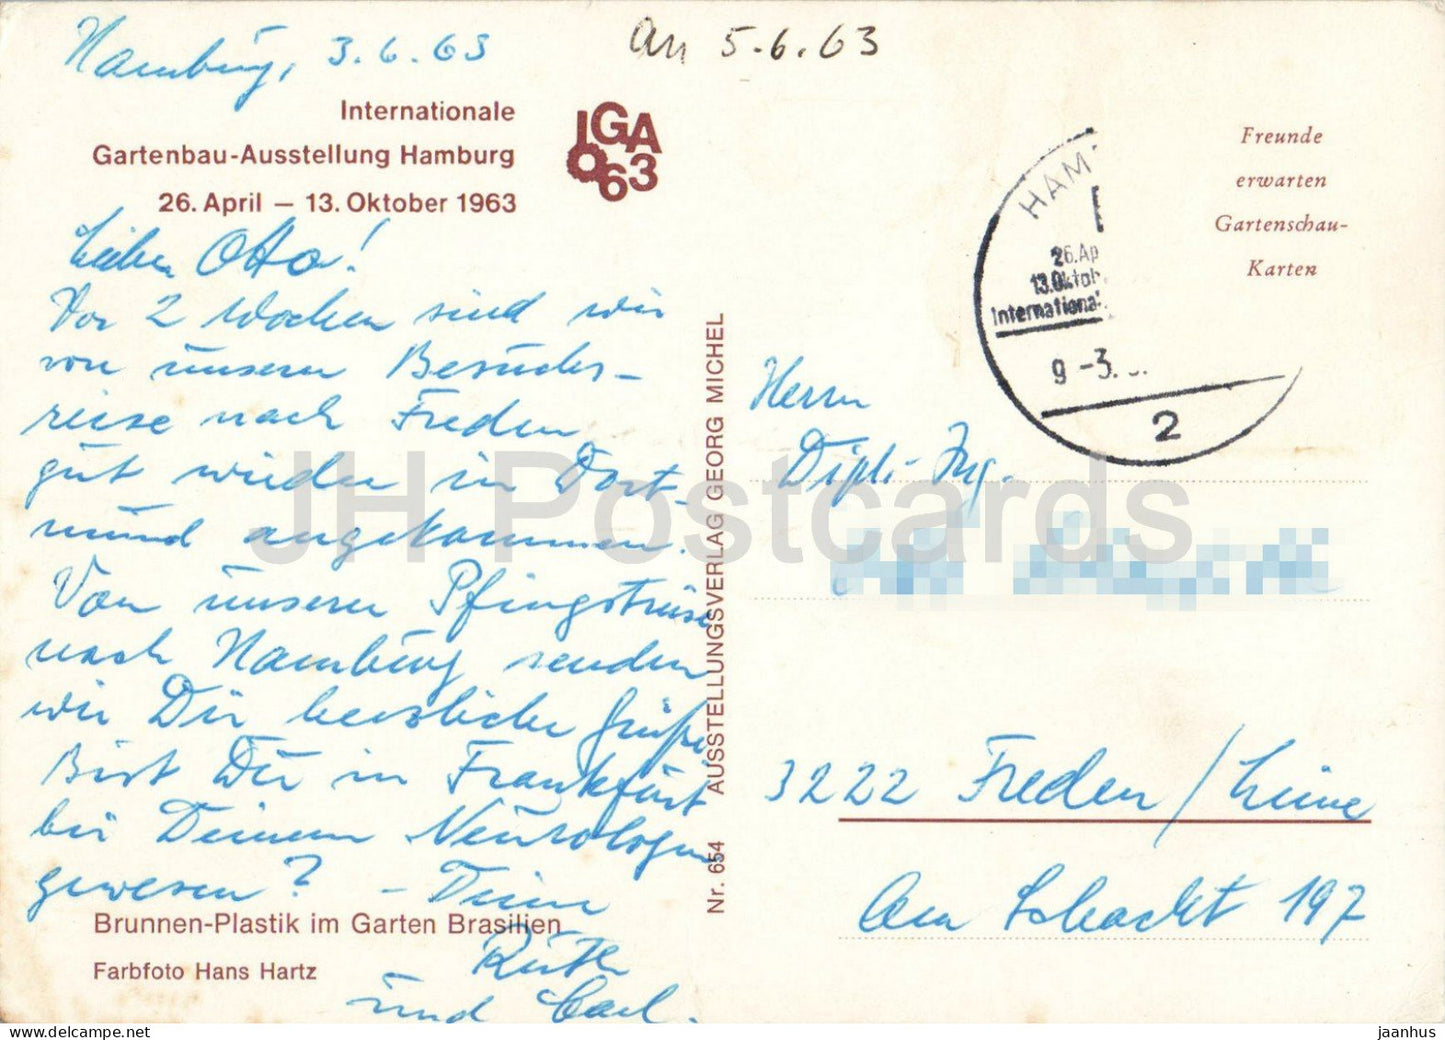 Hamburg, 3.6.63
an 5.6.63
Internationale
Gartenbau-Ausstellung Hamburg
26. April – 13. Oktober 1963
IGA
63
Lieber Otto!
Vor 2 Wochen sind wir
von unserer Besuchs-
reise nach Freden
gut wieder in Dort-
mund angekommen.
Von unserer Pfingstreise
nach Hamburg senden
wir Dir herzliche Grüße
Bist Du in Frankfurt
bei Deinem Neurologen
gewesen? – Deine
Ruth
und Carl.
Brunnen-Plastik im Garten Brasilien
Farbfoto Hans Hartz
Nr. 654 AUSSTELLUNGSVERLAG GEORG MICHEL
Freunde
erwarten
Gartenschau-
Karten
HAM
26.Ap
13.Oktob
International
9-3.
2
Herrn
Dipl.-Ing.
3222 Freden/Leine
Am Schacht 197
JH Postcards
jaanhus
www.delcampe.net